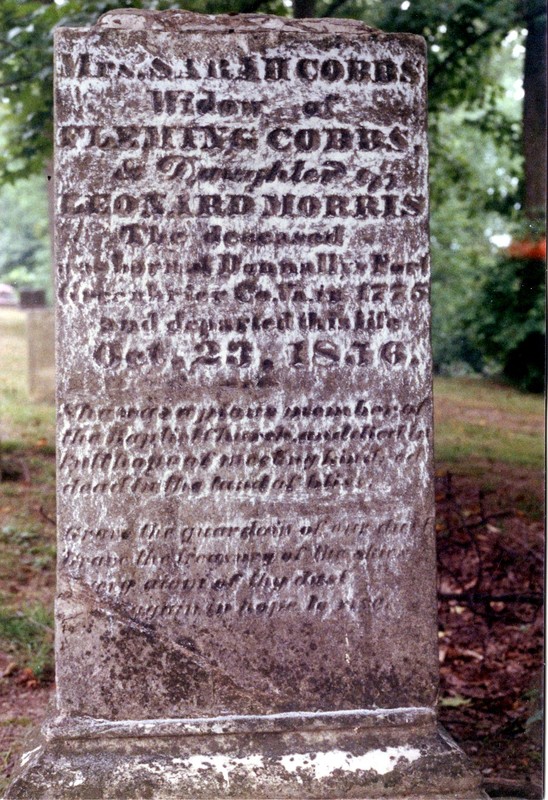 Mrs. SARAH COBBS
Widow of
FLEMING COBBS,
& Daughter of
LEONARD MORRIS
The deceased
was born at Donnally's Fort
Greenbrier Co. Va. in 1776
and departed this life
Oct. 23, 1846.
She was a pious member of
the Baptist Church, and died in
full hope of meeting kindred
dead in the land of bliss.
Grave the guardain of our dust
Grave the treasury of the skies
Every atom of thy dust
again in hope to rise.